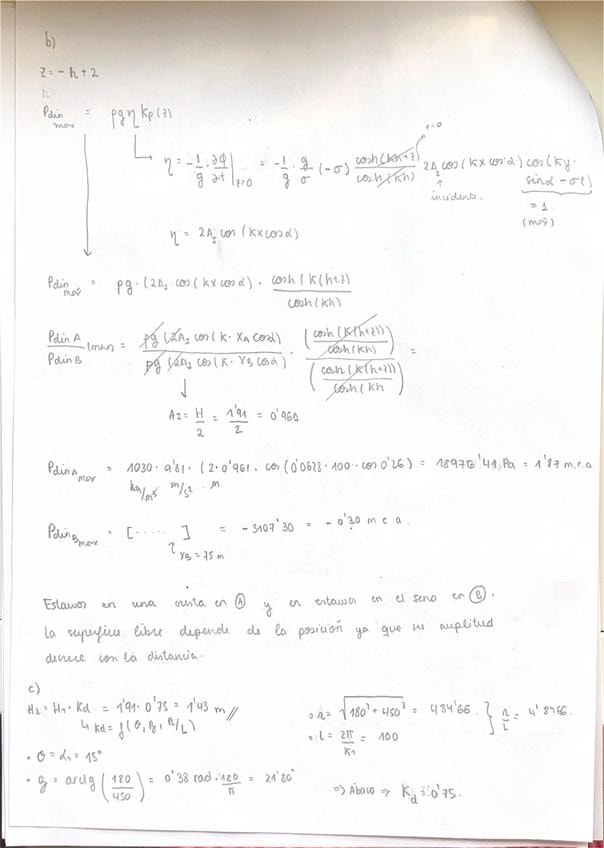 b)
z = -h + 2
Pdin max = ρgη Kp(z)
η = -1/g · ∂ϕ/∂t |z=0 = -1/g · g/σ (-σ) cosh(kh+z)/cosh(kh) · 2A_I cos(kx cosα) cos(ky · sinα - σt)
z=0
incidente.
= 1.
(max)
η = 2A_I cos(kx cosα)
Pdin max = ρg · (2A_I · cos(kx cosα) · cosh(k(h+z)/cosh(kh)
Pdin A/Pdin B (max) = ρg (2A_I cos(k·X_A cosα)/ρg (2A_I cos(k·X_B cosα) · (cosh(k(h+z))/cosh(kh))/(cosh(k(h+z))/cosh(kh) =
A_I = H/2 = 1'91/2 = 0'96
Pdin A max = 1030 · 9'81 · (2 · 0'961 · cos(0'0628 · 100 · cos 0'26) = 18976'41 Pa = 1'87 m.c.a.
kg/m³ m/s² · m
Pdin B max = [ ····· ] = -3107'30 = -0'30 m c a.
X_B = 75 m
Estamos en una cresta en Ⓐ y en estamos en el seno en Ⓑ.
La superficie libre depende de la posición ya que su amplitud
decrece con la distancia.
c)
H2 = H1 · Kd = 1'91 · 0'75 = 1'43 m //
↳ Kd = f(θ, β, r/L)
· θ = α1 = 15°
· β = arctg (180/450) = 0'38 rad · 180/π = 21'80°
· r = √180² + 450² = 484'66. } r/L = 4'8466.
· L = 2π/K1 = 100
⇒ Ábaco ⇒ Kd = 0'75.